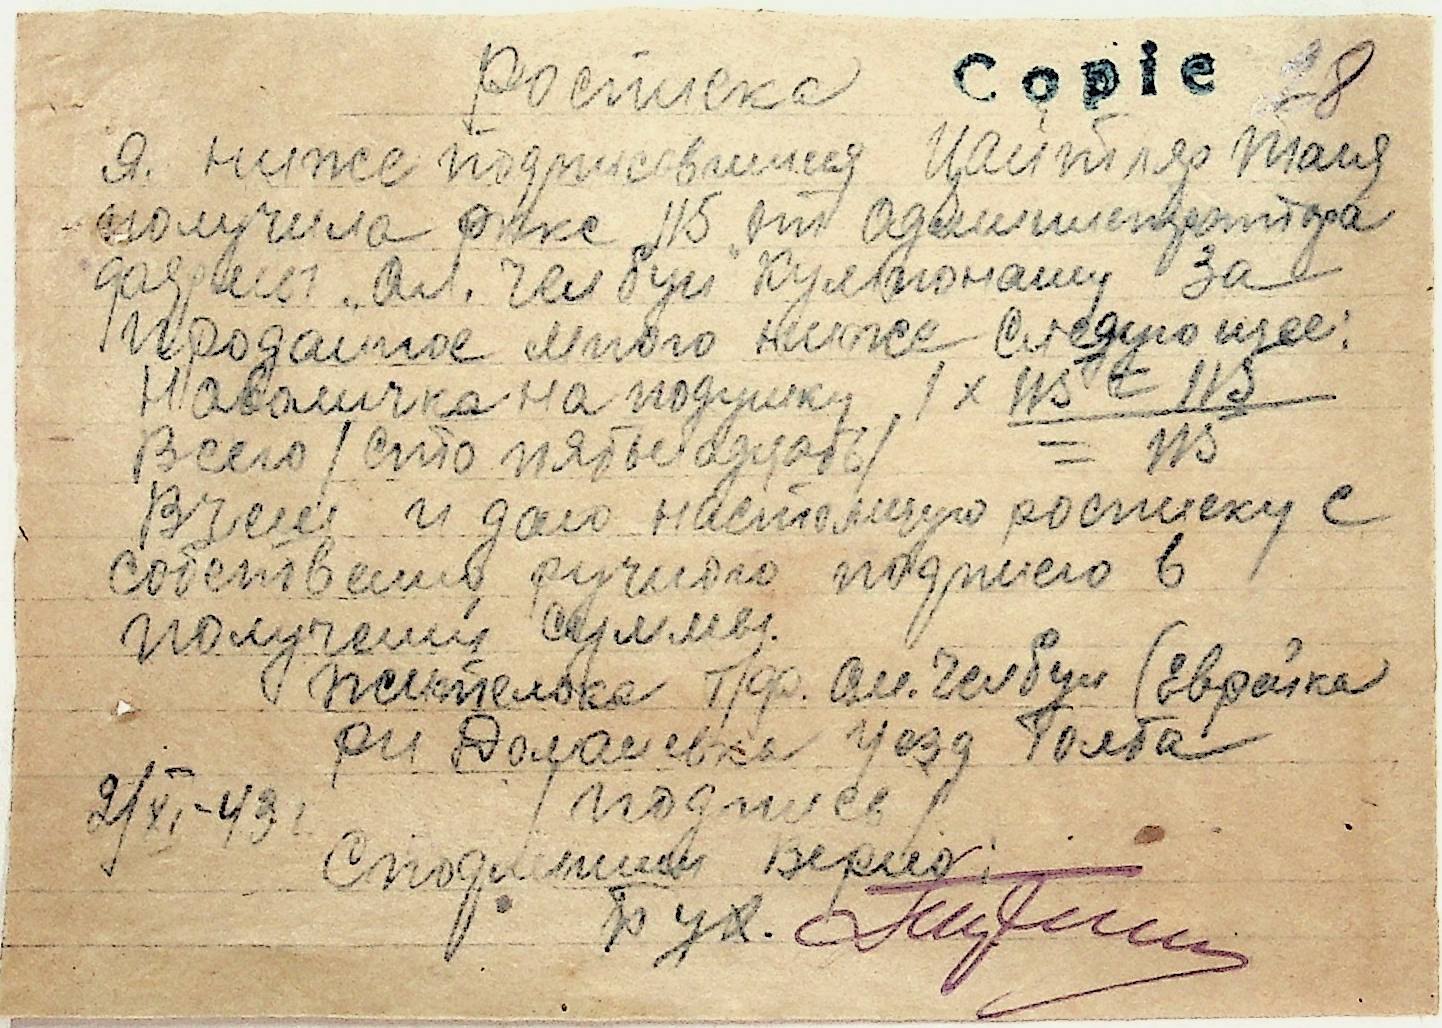 Росписка Copie 28
Я. ниже подписавшися Цайтляр Таня
получила ркс 115 от администратора
фермы "Ал. Челбул" за
проданное мною ниже следующее:
Наволичка на подушку 1 x 115 = 115
Всего /сто пятьнадцать/ = 115
В чем и даю настоящую росписку с
собствено ручного подписю в
получении суммы.
Жителька т/ф. Ал. Челбул (Еврейка
р-н Доманевка уезд Голта
2/XI-43 г. /подпись/
С подлиным верно:
Бух.